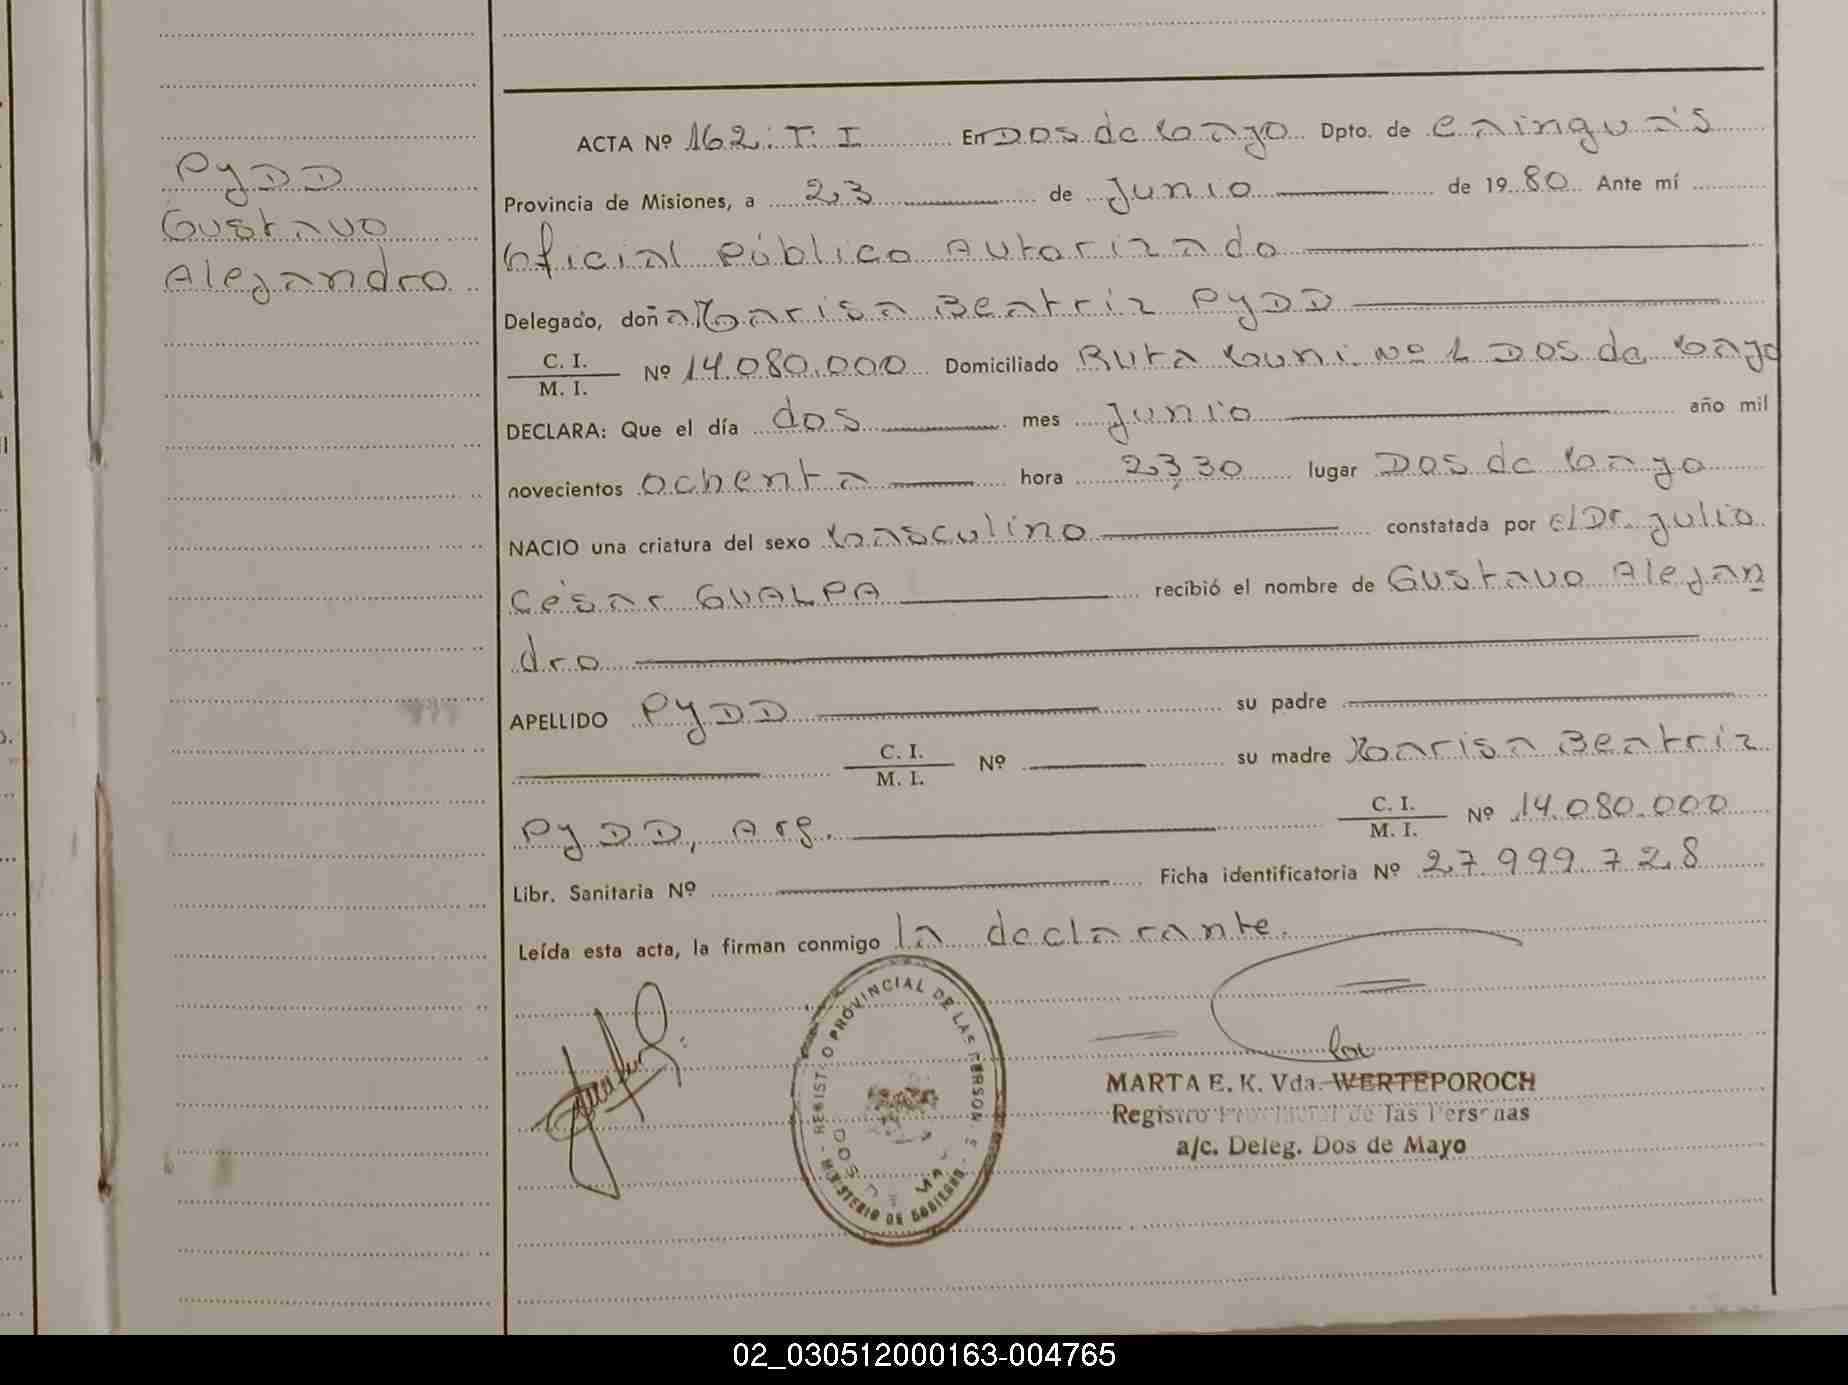 PYDD
Gustavo
Alejandro
ACTA Nº 162. T. I En Dos de Mayo Dpto. de Cainguás
Provincia de Misiones, a 23 de Junio de 1980 Ante mí
Oficial Público Autorizado
Delegado, doña Marisa Beatriz PYDD
C. I.
M. I.
Nº 14.080.000 Domiciliado Ruta Muni. Nº 1 Dos de Mayo
DECLARA: Que el día dos mes Junio año mil
novecientos ochenta hora 23,30 lugar Dos de Mayo
NACIO una criatura del sexo Masculino constatada por el Dr. Julio
César GUALPA recibió el nombre de Gustavo Alejan
dro
APELLIDO PYDD su padre
C. I.
M. I.
Nº su madre Marisa Beatriz
PYDD, Arg.
C. I.
M. I.
Nº 14.080.000
Libr. Sanitaria Nº Ficha identificatoria Nº 27.999.728
Leída esta acta, la firman conmigo la declarante.
REGISTRO PROVINCIAL DE LAS PERSONAS
DOS DE MAYO
MINISTERIO DE GOBIERNO
MARTA E. K. Vda. WERTEPOROCH
Registro Provincial de las Personas
a/c. Deleg. Dos de Mayo
02_030512000163-004765